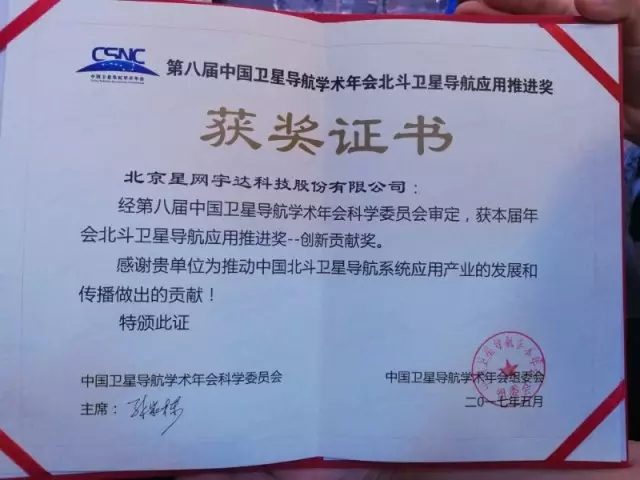 CSNC
中国卫星导航学术年会
第八届中国卫星导航学术年会北斗卫星导航应用推进奖
获奖证书
北京星网宇达科技股份有限公司：
经第八届中国卫星导航学术年会科学委员会审定，获本届年
会北斗卫星导航应用推进奖--创新贡献奖。
感谢贵单位为推动中国北斗卫星导航系统应用产业的发展和
传播做出的贡献！
特颁此证
中国卫星导航学术年会科学委员会
中国卫星导航学术年会组委会
主席：
二〇一七年五月